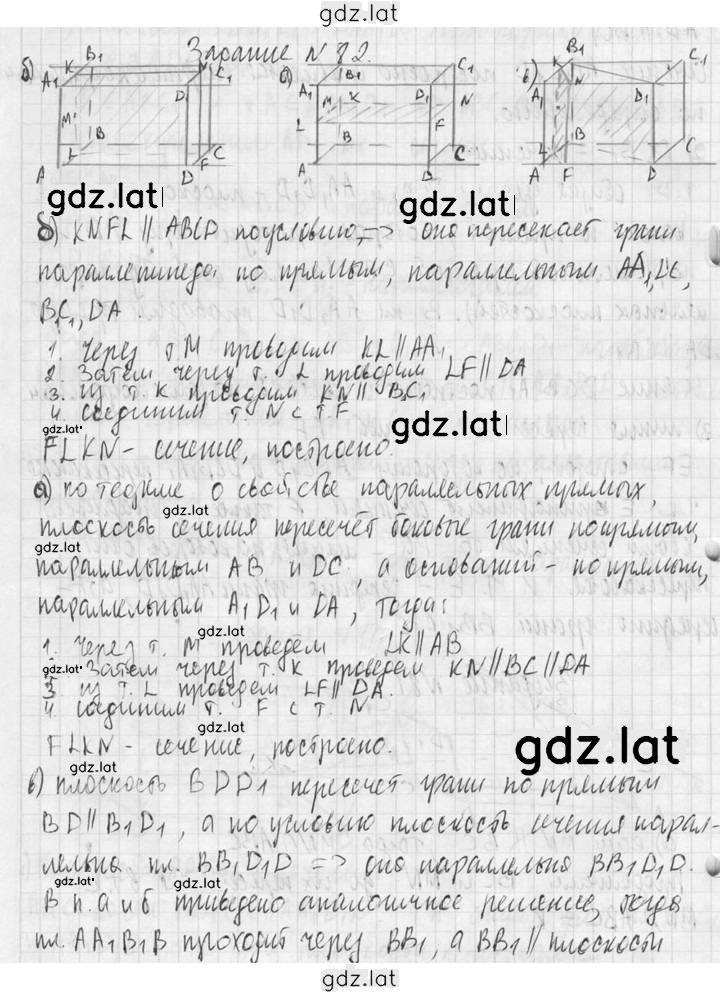 gdz.lat
Задание N 82.
б) K B₁ N C₁ а) B₁ C₁ в) B₁ C₁
A₁ D₁ A₁ M K D₁ N K N A₁ D₁
M L B F C L B F C L B C
A D A D A F D
gdz.lat gdz.lat
б) KNFL || ABCD по условию, => она пересекает грани
параллепипеда по прямым, параллельным AA₁, DC,
B₁C₁, DA
1. Через т. M проводим KL || AA₁
2. Затем через т. L проводим LF || DA
3. из т. K проводим KN || BC₁
4. соединим т. N с т. F
gdz.lat gdz.lat
FLKN - сечение, построено.
а) по теореме о свойстве параллельных прямых,
gdz.lat
плоскость сечения пересечёт боковые грани по прямым,
gdz.lat gdz.lat
параллельным AB и DC, а оснований - по прямым,
параллельным A₁D₁ и DA, тогда:
gdz.lat
1. Через т. M проведем LK || AB
gdz.lat
2. Затем через т. K проведем KN || BC || DA
3. из т. L проведем LF || DA.
4. соединим т. F с т. N
gdz.lat
FLKN - сечение, построено.
gdz.lat
gdz.lat
в) плоскость BDD₁ пересечет грани по прямым
BD || B₁D₁, а по условию плоскость сечения парал-
лельна пл. BB₁D₁D => она параллельна BB₁D₁D.
gdz.lat gdz.lat
В п. а и б приведено аналогичное решение, тогда
пл. AA₁B₁B проходит через BB₁, а BB₁ || плоскости
gdz.lat